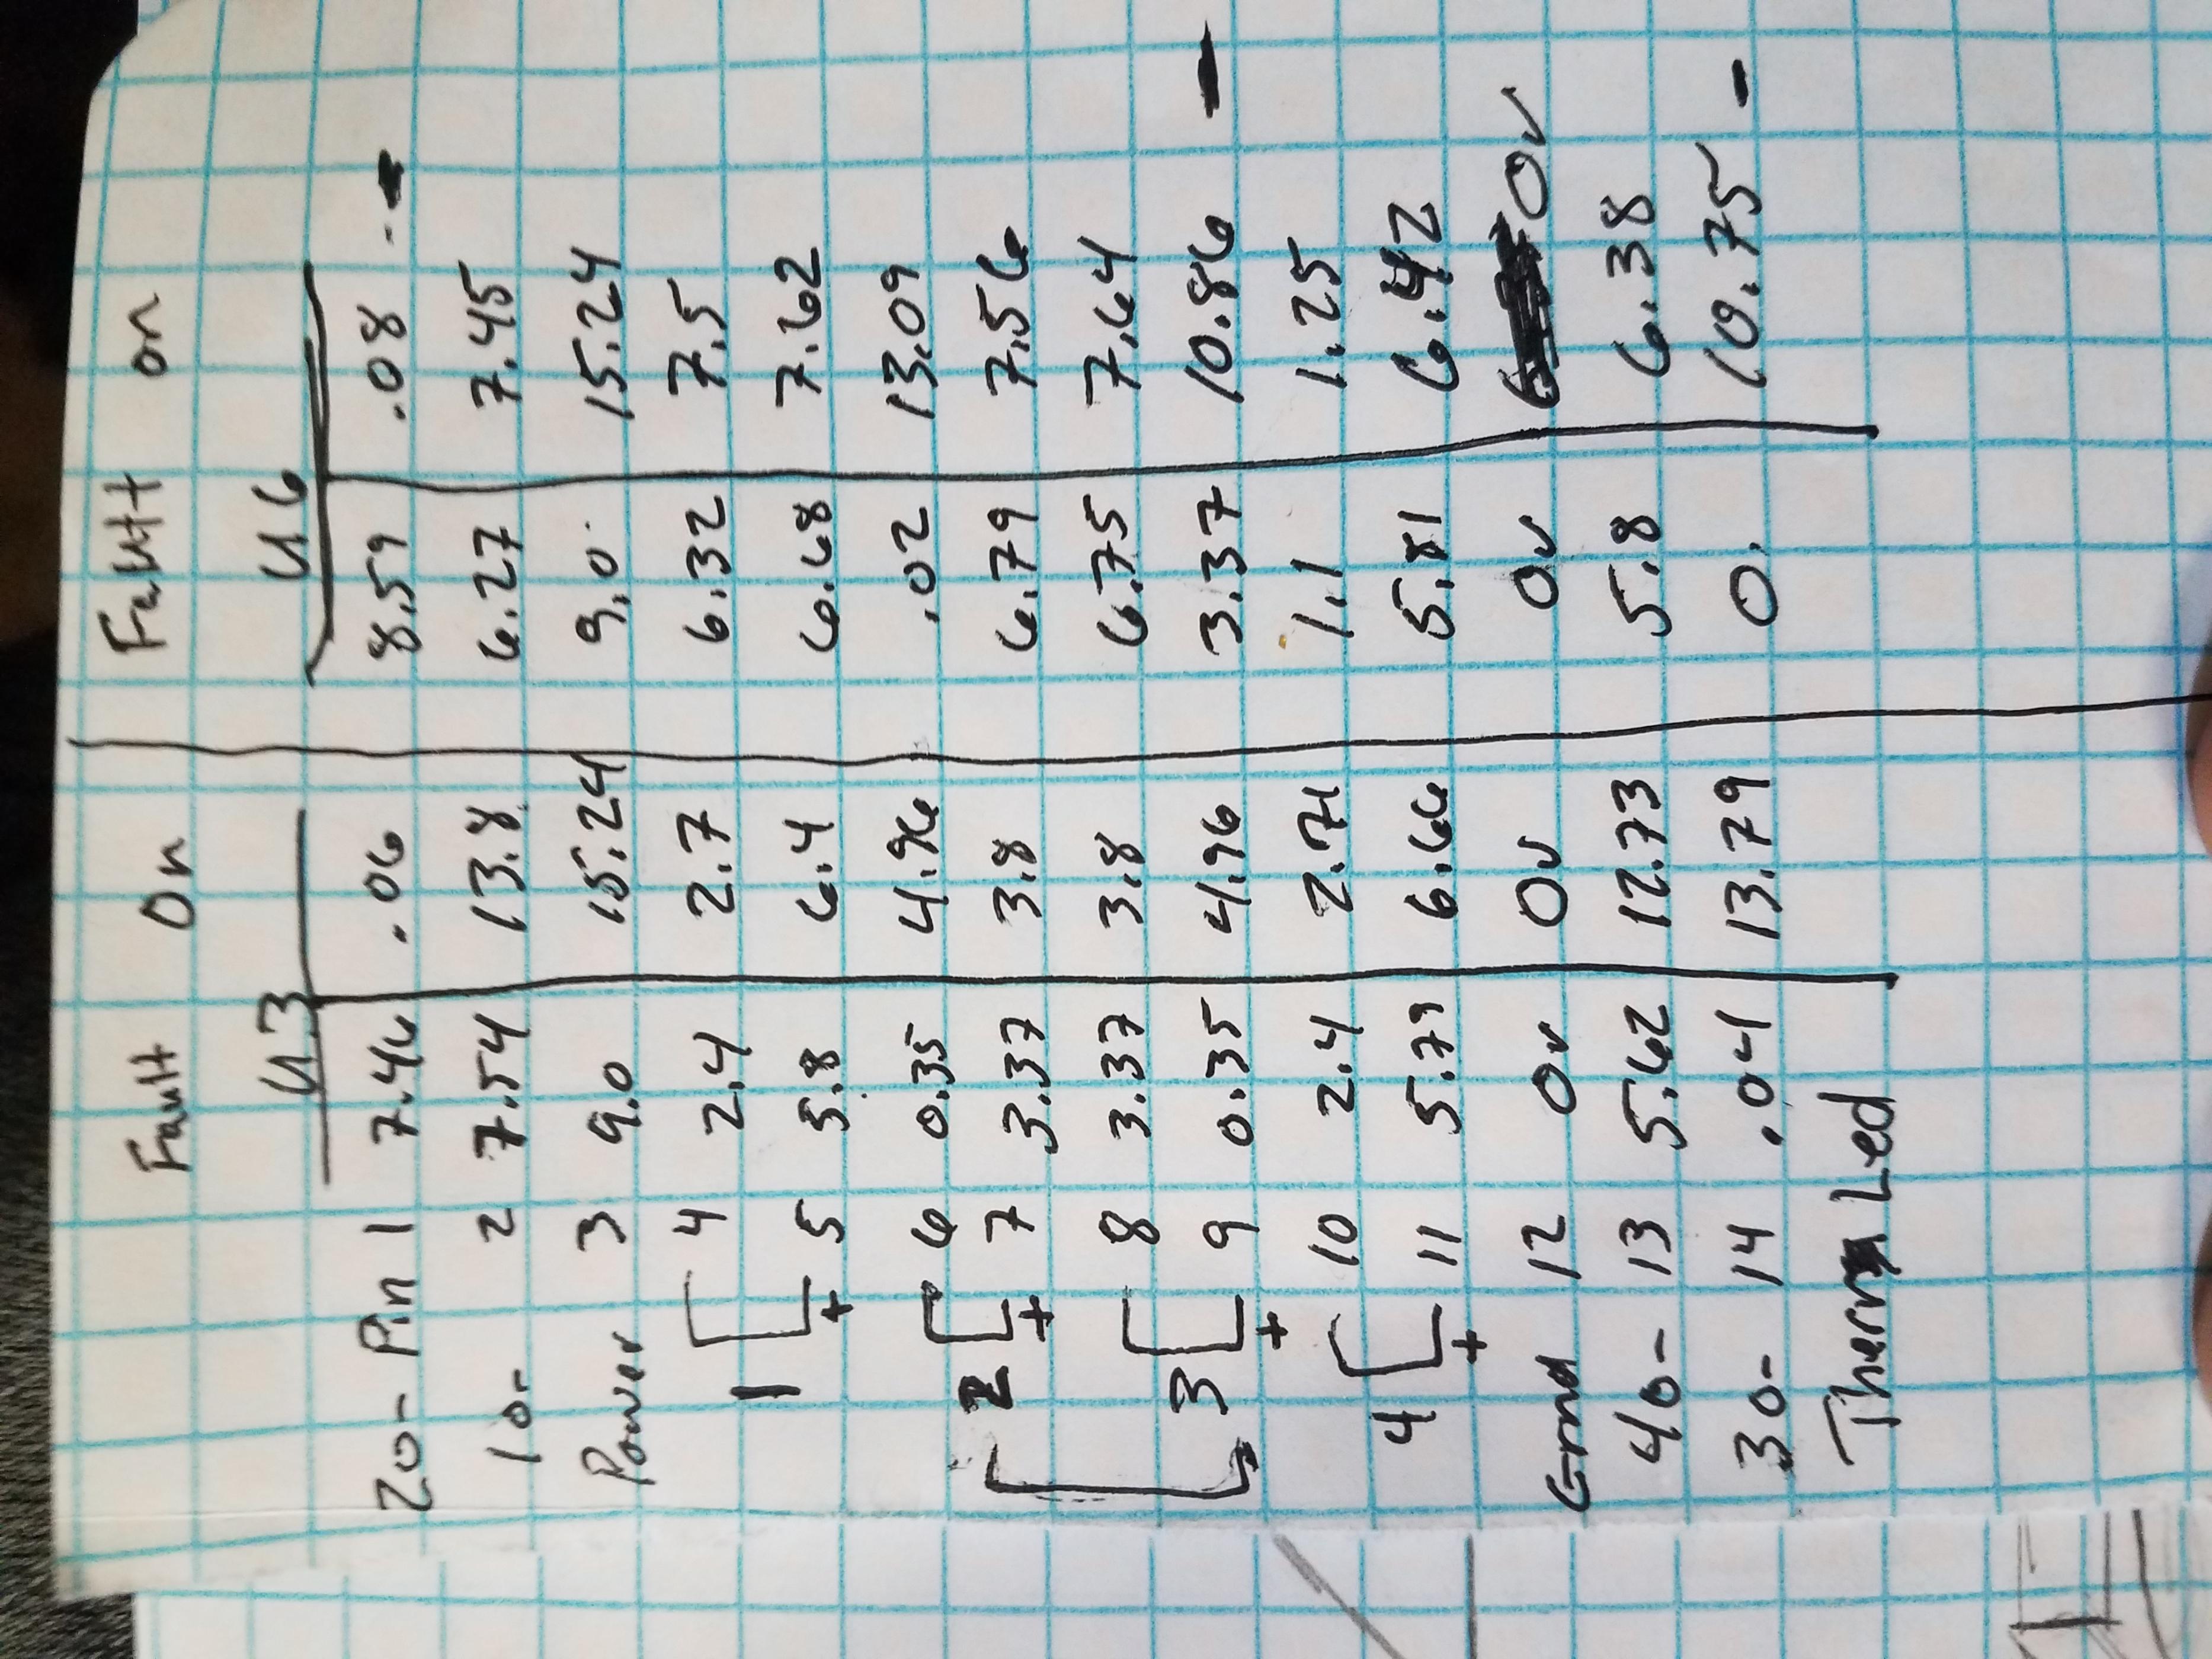 Fault On Fault on
U3 U6
20- Pin 1 7.46 .06 8.59 .08 -
10- 2 7.54 13.8 6.27 7.45
Power 3 9.0 15.24 9.0 15.24
4 2.4 2.7 6.32 7.5
1
+ 5 5.8 6.4 6.68 7.62
6 0.35 4.96 .02 13.09
2 + 7 3.37 3.8 6.79 7.56
8 3.37 3.8 6.75 7.64
3 + 9 0.35 4.96 3.37 10.86 -
10 2.4 2.71 1.1 1.25
4 + 11 5.79 6.66 5.81 6.42
Grnd 12 0v 0v 0v 0v
40- 13 5.62 12.73 5.8 6.38
30- 14 .041 13.79 0. 10.75 -
Therm Led